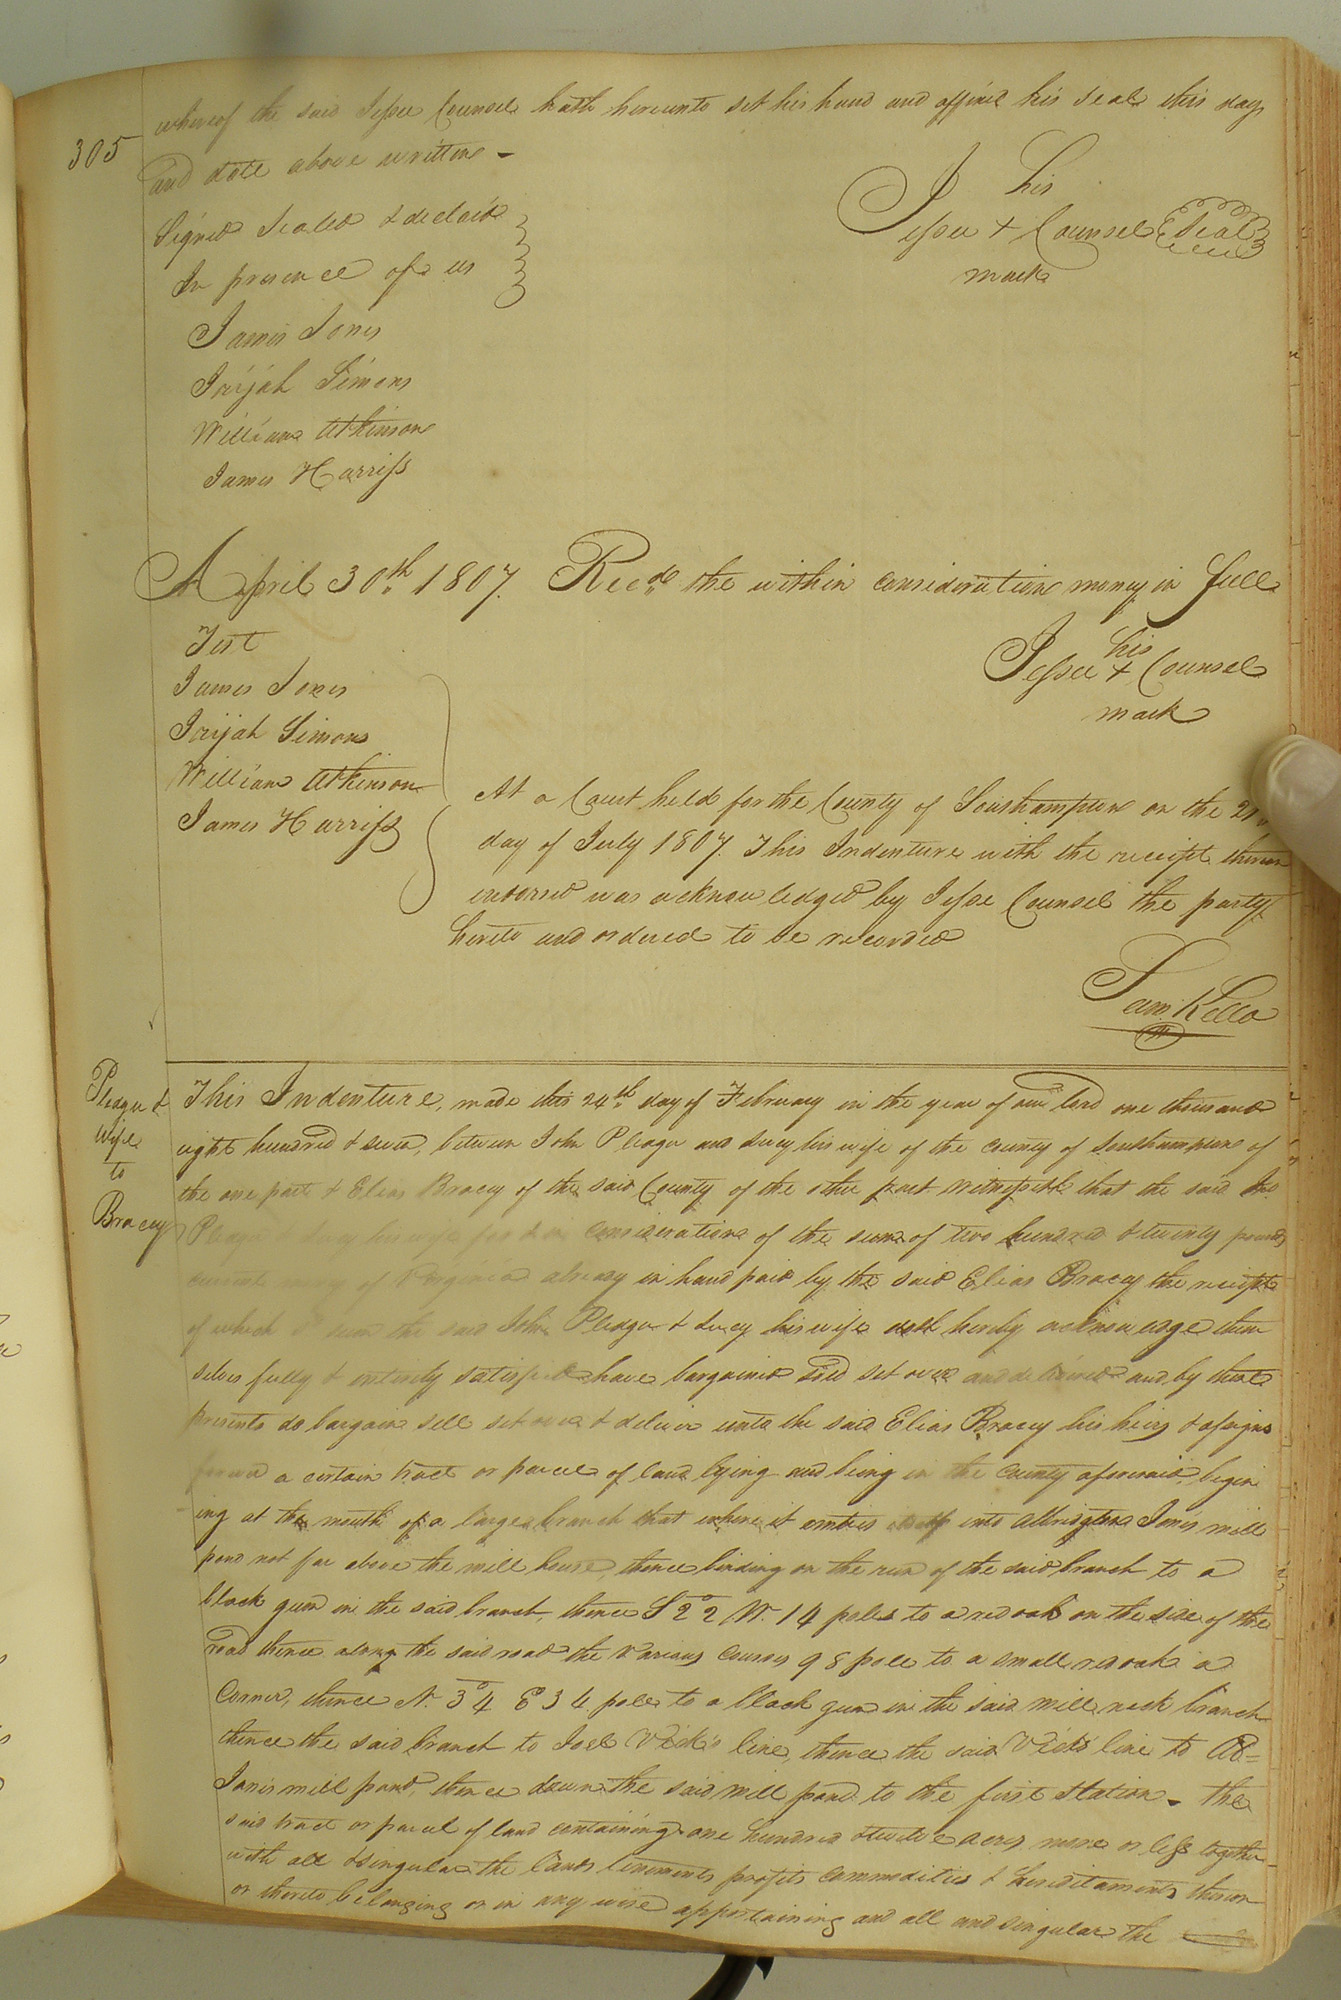 305
whereof the said Jesse Counsel hath hereunto set his hand and affixed his seal this day
and date above written -
Signed Sealed & declaid
In presence of us
his
Jesse + Counsel Seal
mark
James Jones
Jrijah Simons
William Atkinson
James Harriss
April 30th 1807. Recd. the within consideration money in full
Test
his
Jesse + Counsel
mark
James Jones
Jrijah Simons
William Atkinson
James Harriss
At a Court held for the County of Southampton on the
day of July 1807. This Indenture with the receipt thereon
indorsed was acknowledged by Jesse Counsel the party
hereto and ordered to be recorded
Sam. Kello
Pledger &
Wife
to
Bracey
This Indenture, made this 24th day of February in the year of our lord one thousand
eight hundred & seven, between John Pledger and Lucy his wife of the county of Southampton of
the one part & Elias Bracey of the said County of the other part Witnesseth that the said Jno
Pledger & Lucy his wife for & in consideration of the sum of two hundred & twenty pounds
current money of Virginia already in hand paid by the said Elias Bracey the receipt
of which sum the said John Pledger & Lucy his wife doth hereby acknowledge them
selves fully & entirely satisfied have bargained sold set over and delivered and by these
presents do bargain sell set over & deliver unto the said Elias Bracey his heirs & assigns
a certain tract or parcel of land lying and being in the county aforesaid, begin
ing at the mouth of a large branch that where it enters itself into Albrigton Jones mill
pond not far above the mill house, thence binding on the run of the said branch to a
black gum in the said branch, thence S 22° W. 14 poles to a red oak on the side of the
road thence along the said road the various courses 98 pole to a small red oak a
Corner, thence N. 34° E 34 poles to a black gum in the said mill neck branch
thence the said branch to Joel Vick's line, thence the said Vicks line to Al=
Jones mill pond, thence down the said mill pond to the first station - the
said tract or parcel of land containing one hundred & twelve acres more or less together
with all & singular the lands tenements profits commodities & hereditaments thereon
or thereto belonging or in any wise appertaining and all and singular the